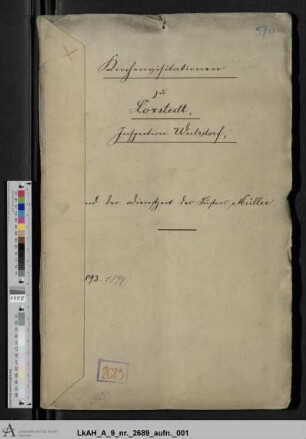 Kirchenvisitationen
zu
Loxstedt,
Inspection Wulsdorf,
während der Dienstzeit des Pastors Müller.
1893. 1899
2689
LkAH_A_9_nr._2689_aufn._001